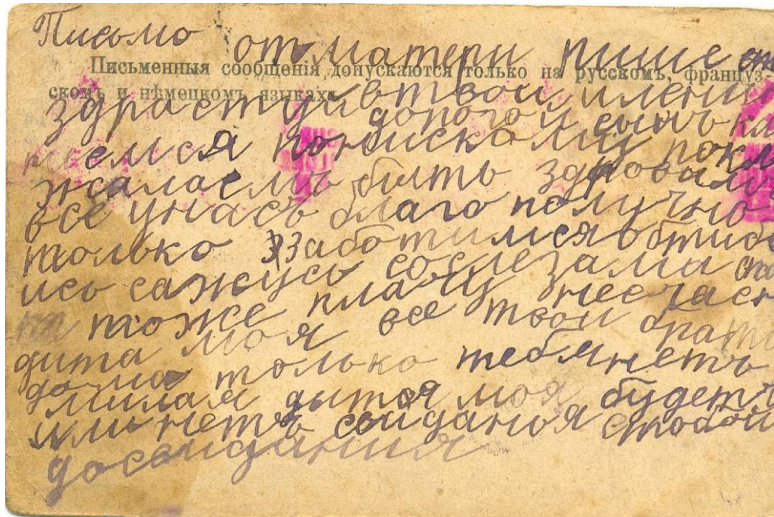 Письмо отматери пише
Письменныя сообщенія допускаются только на русскомъ, француз-
скомъ и нѣмецкомъ языкахъ.
здрастуй твои имени
дорогой сынъ кла
емся понискому покло
жалаемъ быть здровам
все унасъ благо получно
только заботимся отибе
ись сажусь сослезами
тоже плачу несчас
дита моя все твои брат
дома только тебя нетъ
милая дытоя моя будетъ
или нетъ свиданоя стобой
досвидания